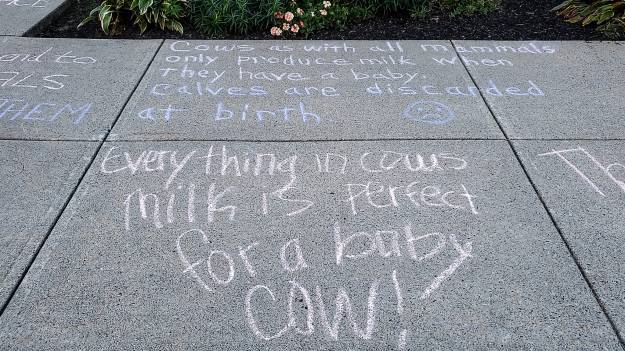 Cows as with all mammals
only produce milk when
They have a baby.
Calves are discarded
at birth
to
THEM
Everything in cows
milk is Perfect
for a baby
COW!